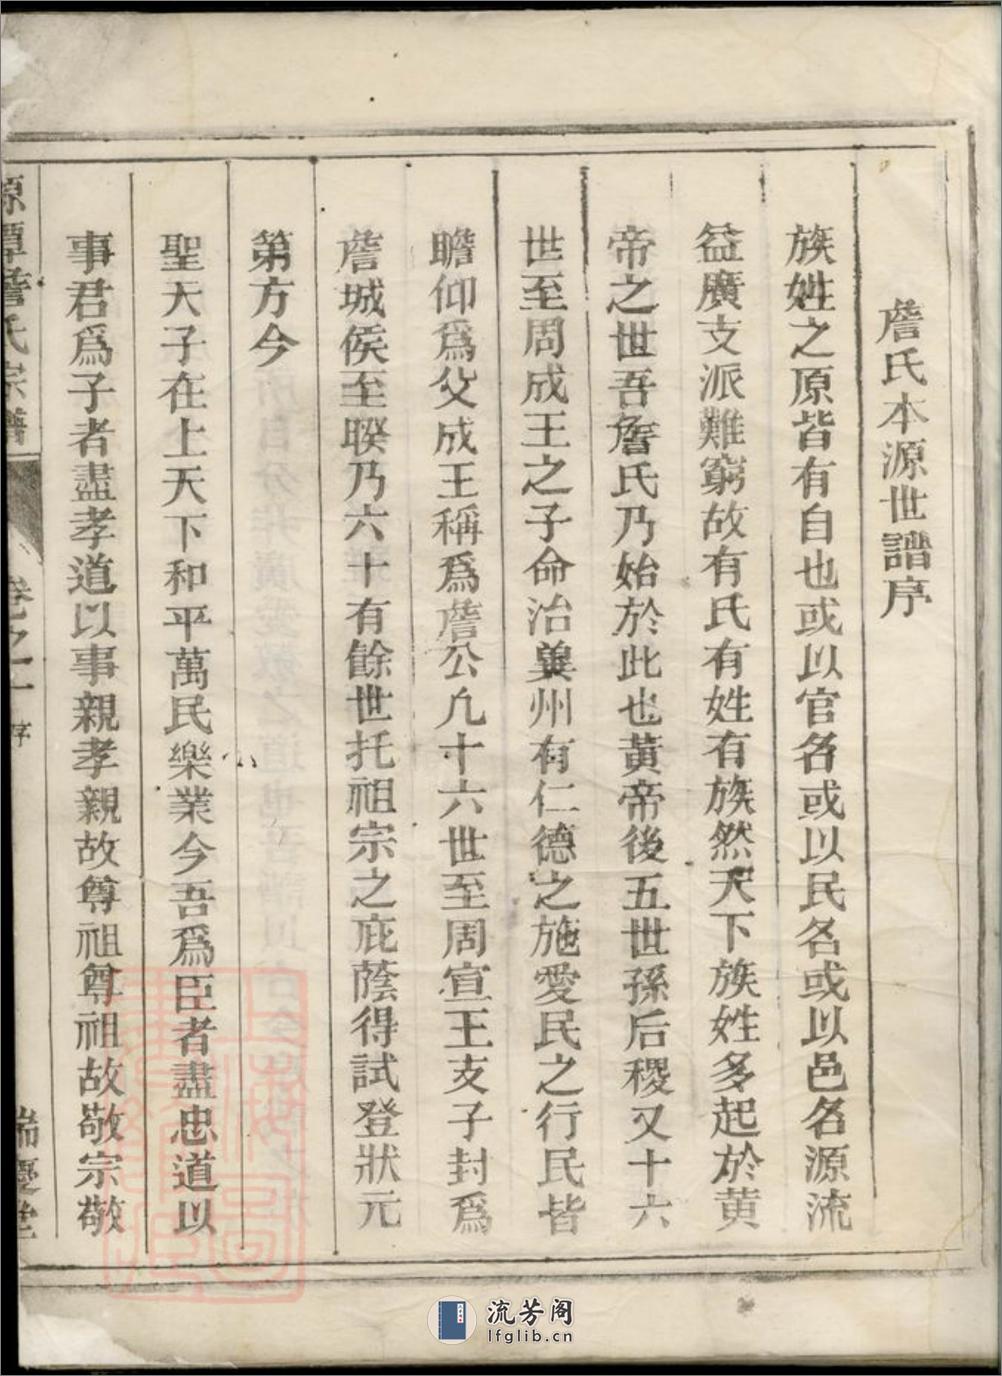 詹氏本源世譜序
族姓之原皆有自也或以官名或以民名或以邑名源流
益廣支派難窮故有氏有姓有族然天下族姓多起於黃
帝之世吾詹氏乃始於此也黃帝後五世孫后稷又十六
世至周成王之子命治冀州有仁德之施愛民之行民皆
瞻仰爲父成王稱爲詹公凢十六世至周宣王支子封爲
詹城侯至暌乃六十有餘世托祖宗之庇蔭得試登狀元
第方今
聖天子在上天下和平萬民樂業今吾爲臣者盡忠道以
事君爲子者盡孝道以事親孝親故尊祖尊祖故敬宗敬
源潭詹氏宗譜
卷之一 序
瑞慶堂
流芳阁
lfglib.cn